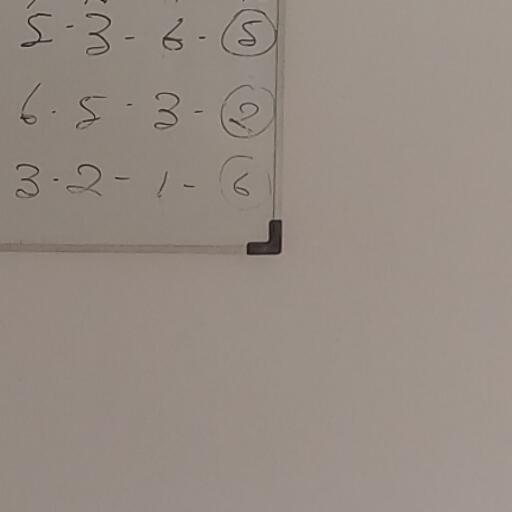 5 · 3 - 6 - 5
6 · 5 · 3 - 2
3 · 2 - 1 - 6